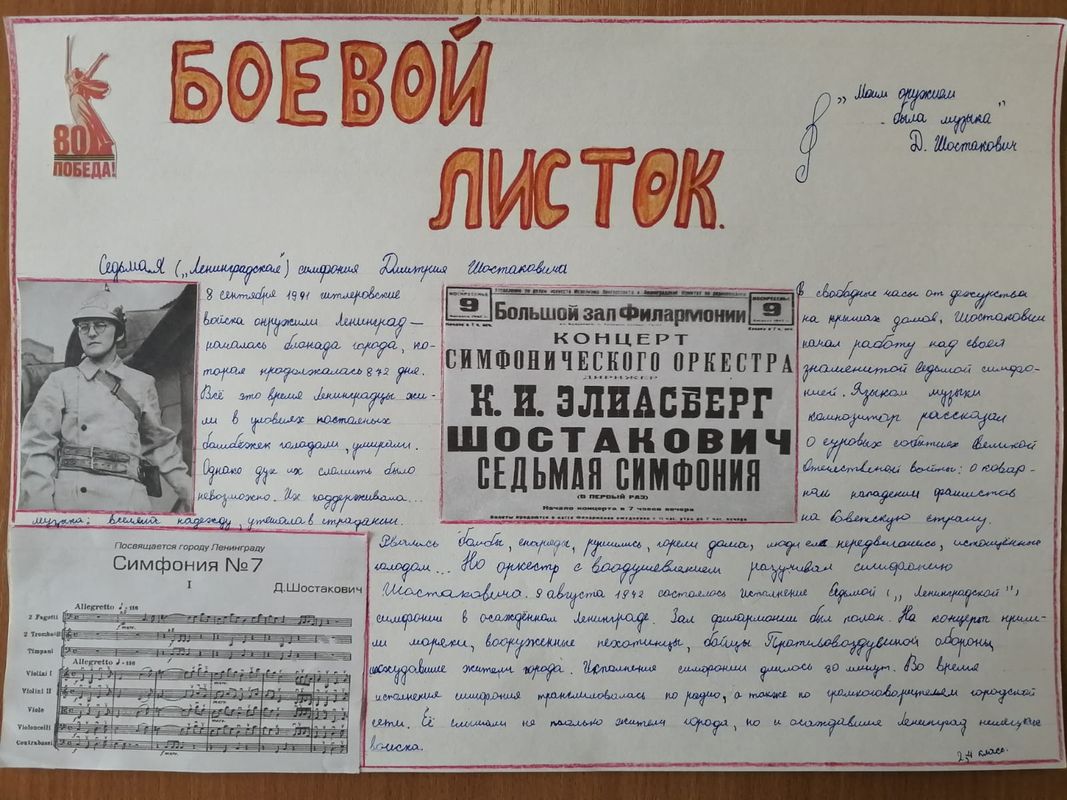 БОЕВОЙ
ЛИСТОК.
80
ПОБЕДА!
„Моим оружием
была музыка"
Д. Шостакович
Седьмая („Ленинградская") симфония Дмитрия Шостаковича
8 сентября 1941 гитлеровские
войска окружили Ленинград —
началась блокада города, ко-
торая продолжалась 872 дня.
Всё это время Ленинградцы жи-
ли в условиях постоянных
бомбёжек голодали, умирали.
Однако дух их сломить было
невозможно. Их поддерживала...
музыка: вселяла надежду, утешала в страданьи.
ВОСКРЕСЕНЬЕ
9
Большой зал Филармонии
ВОСКРЕСЕНЬЕ
9
КОНЦЕРТ
СИМФОНИЧЕСКОГО ОРКЕСТРА
ДИРИЖЕР
К. И. ЭЛИАСБЕРГ
ШОСТАКОВИЧ
СЕДЬМАЯ СИМФОНИЯ
(В ПЕРВЫЙ РАЗ)
Начало концерта в 7 часов вечера
В свободные часы от дежурства
на крышах домов, Шостакович
начал работу над своей
знаменитой Седьмой симфо-
нией. Языком музыки
композитор рассказал
о суровых событиях Великой
Отечественной войны: о ковар-
ном нападении фашистов
на Советскую страну.
Рвались бомбы, снаряды, рушились, горели дома, люди еле передвигались, истощённые
голодом... Но оркестр с воодушевлением разучивал симфонию
Шостаковича. 9 августа 1942 состоялось исполнение Седьмой („Ленинградской"),
симфонии в осаждённом Ленинграде. Зал филармонии был полон. На концерт приш-
ли моряки, вооруженные пехотинцы, бойцы Противовоздушной обороны
исхудавшие жители города. Исполнение симфонии длилось 80 минут. Во время
исполнение симфония транслировалась по радио, а также по громкоговорителям городской
сети. Её слышали не только жители города, но и осаждавшие Ленинград немецкие
войска.
2,4 класс.
Посвящается городу Ленинграду
Симфония №7
I
Д.Шостакович
Allegretto ♩=116
2 Fagotti
Timpani
Allegretto ♩=116
Violini I
Violini II
Viole
Violoncelli
Contrabassi